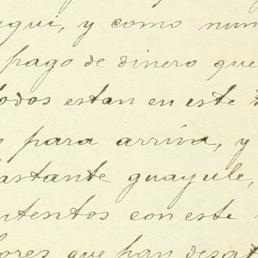 aqui, y como nun
pago de dinero que
todos estan en este
para arriva, y
bastante guayule,
ntentos con este
ores que han desat